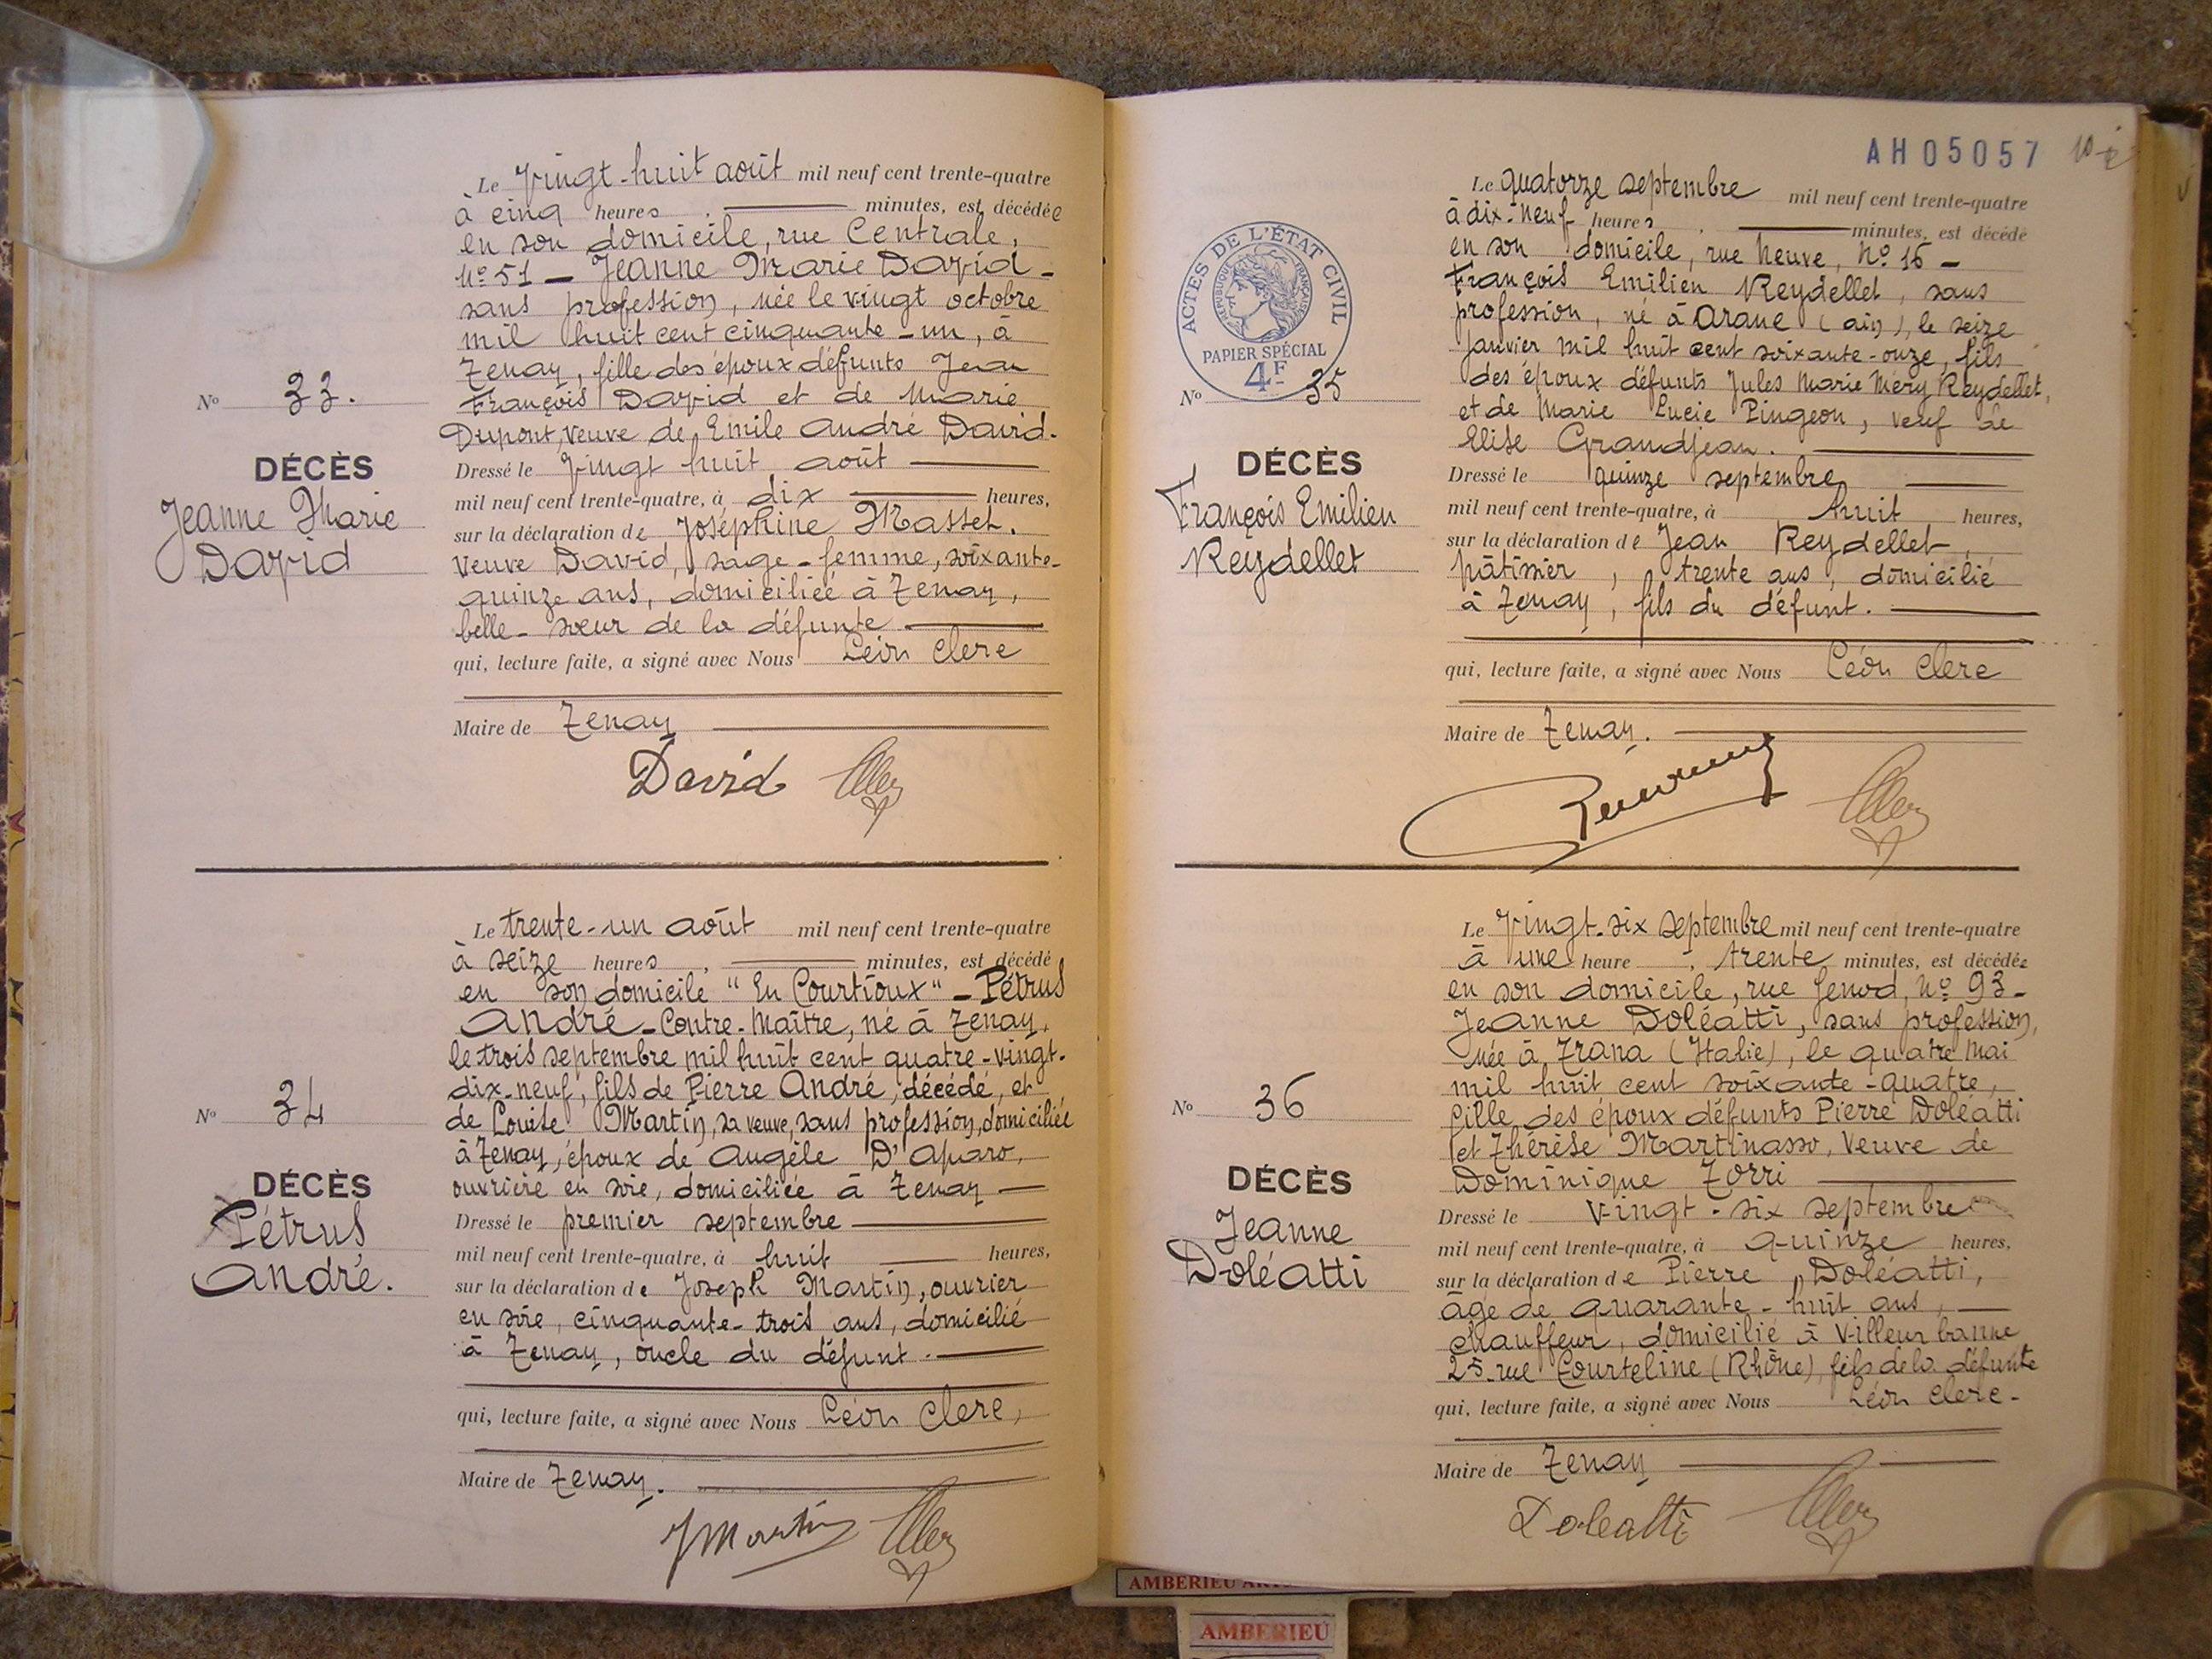 Le vingt-huit août mil neuf cent trente-quatre
à cinq heures, minutes, est décédée
en son domicile, rue Centrale,
No 51 - Jeanne Marie David -
sans profession, née le vingt octobre
mil huit cent cinquante-un, à
Tenay, fille des époux défunts Jean
François David et de Marie
Dupont, veuve de Emile André David.
No 33.
DÉCÈS
Jeanne Marie
David
Dressé le vingt huit août
mil neuf cent trente-quatre, à dix heures,
sur la déclaration de Joséphine Masset.
Veuve David, sage-femme, soixante-
quinze ans, domiciliée à Tenay,
belle-sœur de la défunte
qui, lecture faite, a signé avec Nous Léon Clerc
Maire de Tenay
David
Le trente-un août mil neuf cent trente-quatre
à seize heures, minutes, est décédé
en son domicile "En Courtioux" - Pétrus
André - Contre-Maître, né à Tenay,
le trois septembre mil huit cent quatre-vingt-
dix-neuf, fils de Pierre André, décédé, et
de Louise Martin, sa veuve, sans profession, domiciliée
à Tenay, époux de Angèle D'Aparo,
ouvrière en soie, domiciliée à Tenay
No 34
DÉCÈS
Pétrus
André.
Dressé le premier septembre
mil neuf cent trente-quatre, à huit heures,
sur la déclaration de Joseph Martin, ouvrier
en soie, cinquante-trois ans, domicilié
à Tenay, oncle du défunt.
qui, lecture faite, a signé avec Nous Léon Clerc,
Maire de Tenay.
J Martin
AH05057
Le quatorze septembre mil neuf cent trente-quatre
à dix-neuf heures, minutes, est décédé
en son domicile, rue Neuve, No 16 -
François Emilien Reydellet, sans
profession, né à Arane (Ain), le seize
janvier mil huit cent soixante-onze, fils
des époux défunts Jules Marie Méry Reydellet,
et de Marie Lucie Pingeon, veuf de
Elise Grandjean.
ACTES DE L'ÉTAT CIVIL
RÉPUBLIQUE FRANÇAISE
PAPIER SPÉCIAL
4F
No 35
DÉCÈS
François Emilien
Reydellet
Dressé le quinze septembre
mil neuf cent trente-quatre, à huit heures,
sur la déclaration de Jean Reydellet,
pâtissier, trente ans, domicilié
à Tenay, fils du défunt.
qui, lecture faite, a signé avec Nous Léon Clerc
Maire de Tenay.
Le vingt-six septembre mil neuf cent trente-quatre
à une heure, trente minutes, est décédée
en son domicile, rue Genod, No 93 -
Jeanne Doléatti, sans profession,
née à Trana (Italie), le quatre mai
mil huit cent soixante-quatre,
fille des époux défunts Pierre Doléatti
et Thérèse Martinasso, Veuve de
Dominique Torri
No 36
DÉCÈS
Jeanne
Doléatti
Dressé le vingt-six septembre
mil neuf cent trente-quatre, à quinze heures,
sur la déclaration de Pierre Doléatti,
âgé de quarante-huit ans,
chauffeur, domicilié à Villeurbanne
25 rue Courteline (Rhône), fils de la défunte
qui, lecture faite, a signé avec Nous Léon Clerc -
Maire de Tenay
Doleatti
AMBERIEU
AMBERIEU